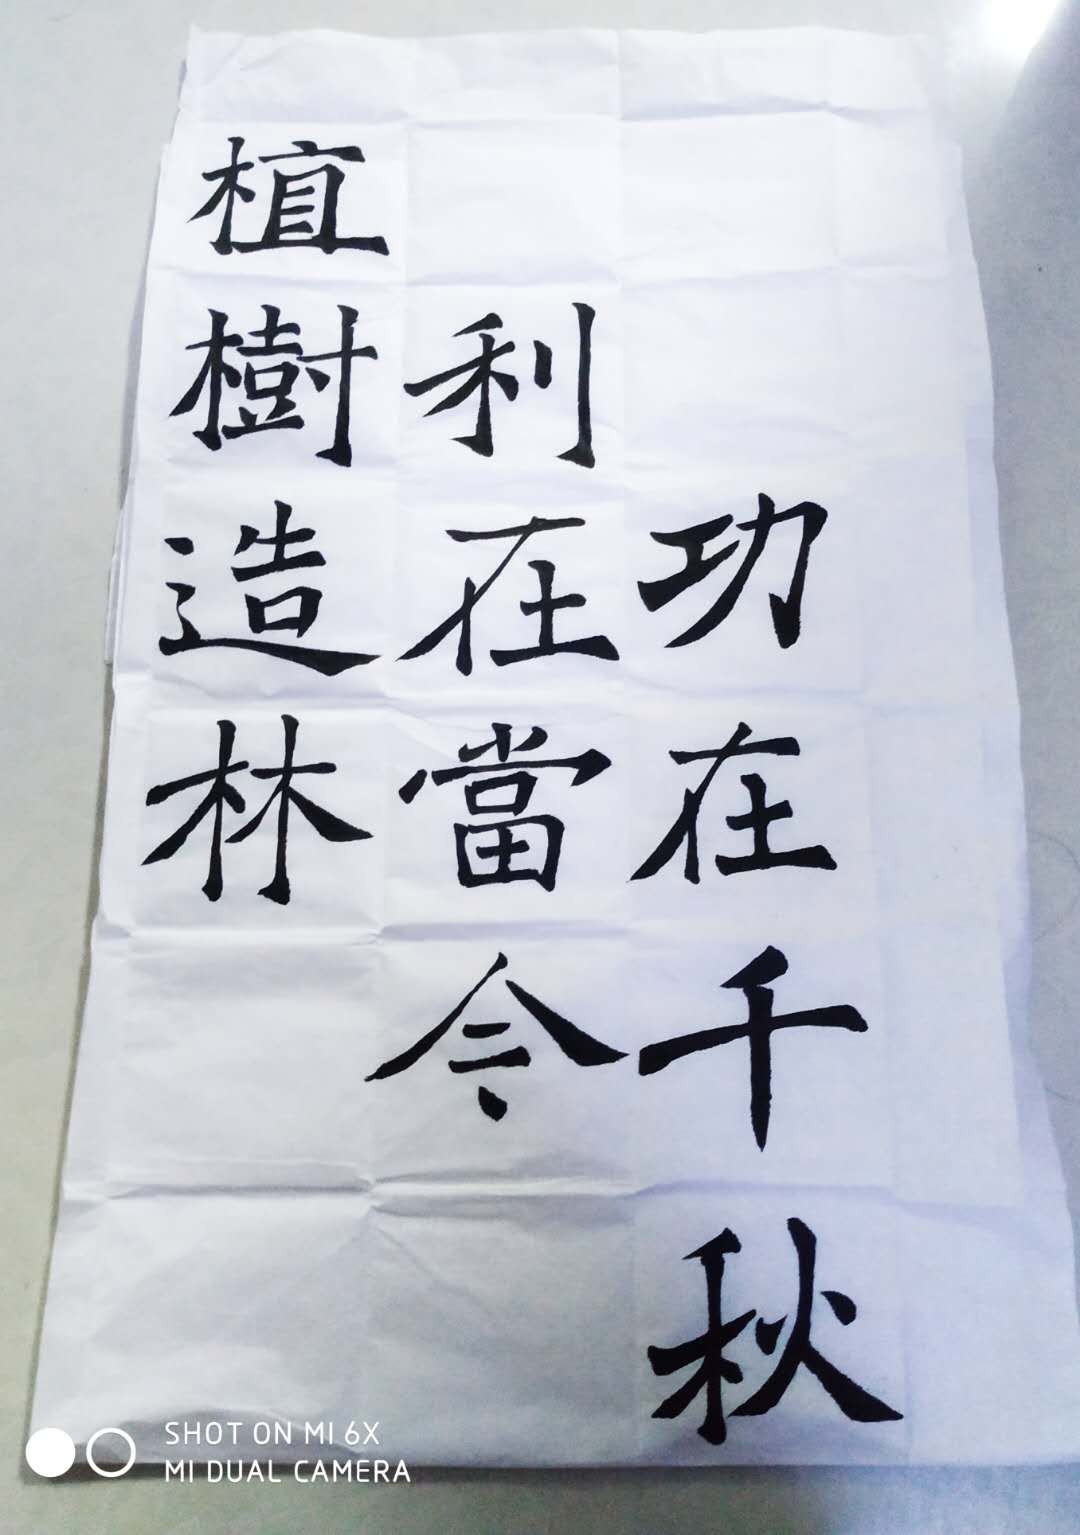 植樹造林
利在當今
功在千秋
SHOT ON MI 6X
MI DUAL CAMERA